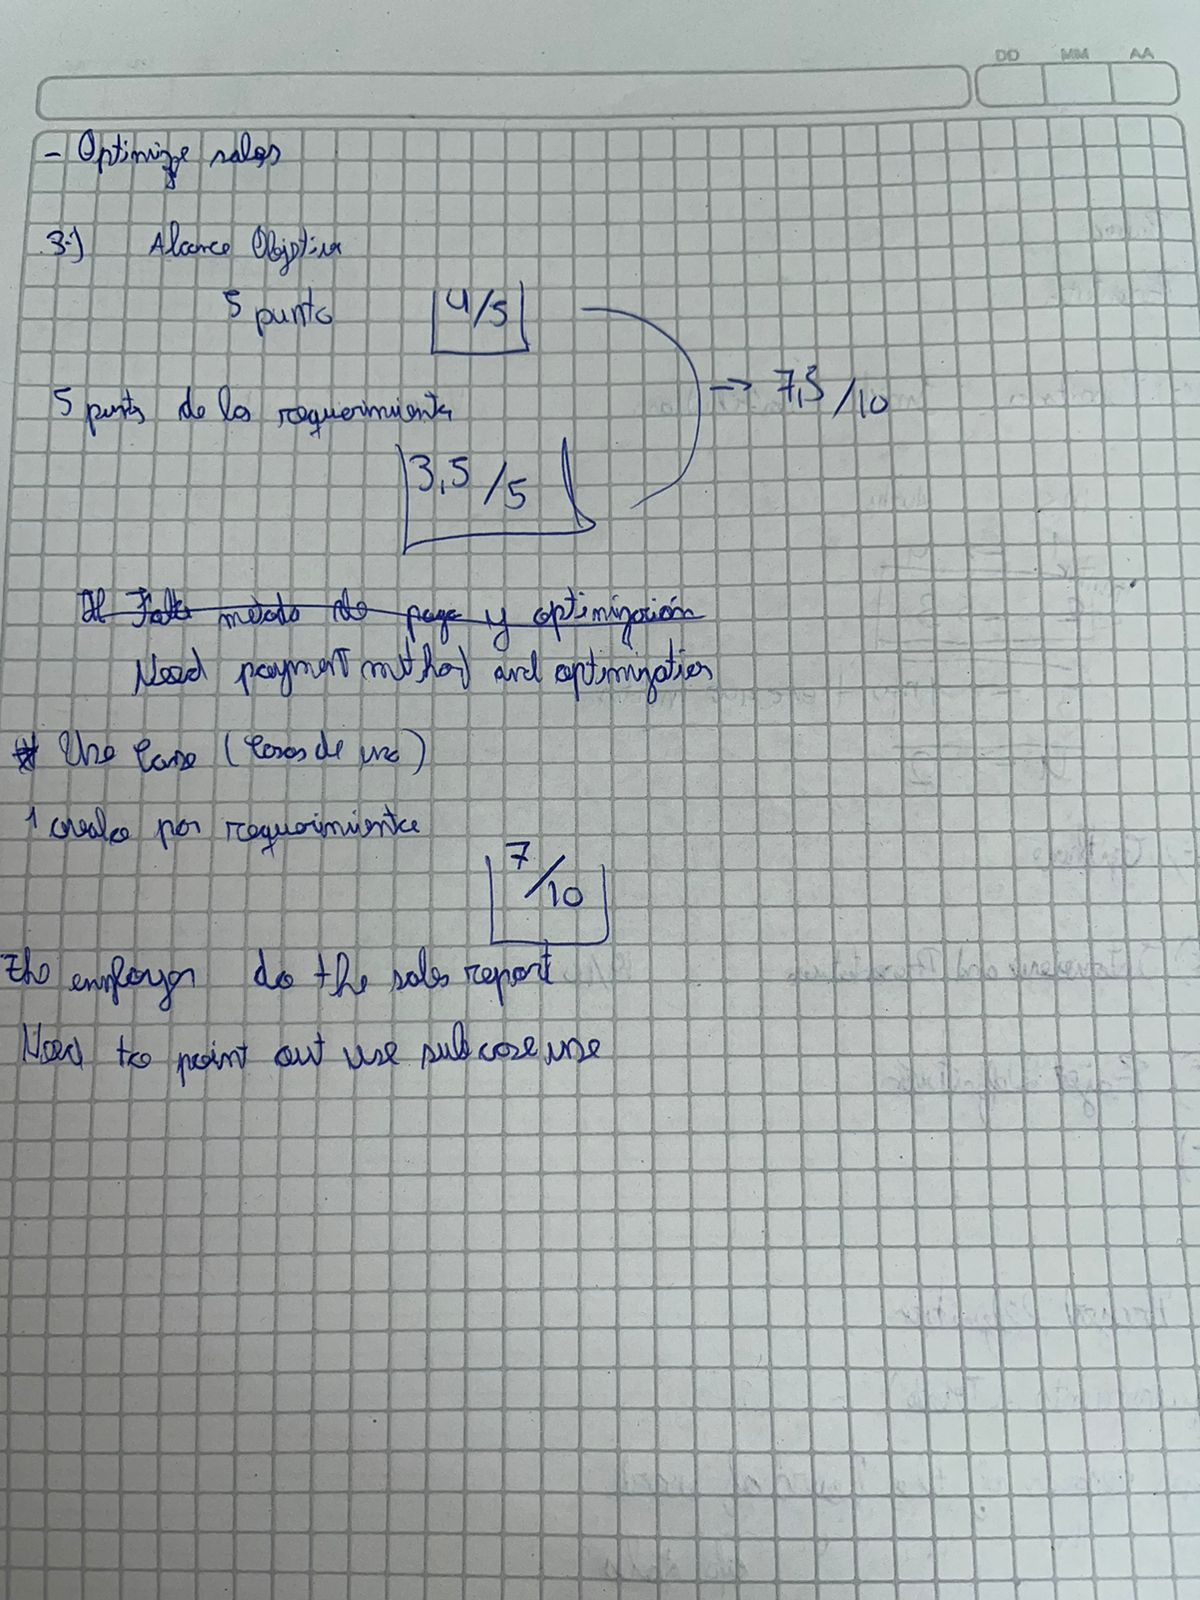 DD MM AA
- Optimize sales
3.) Alcance Objetivo
5 punto 4/5
5 punts de los requerimiento
3,5/5
→ 7,5/10
Falta metodo de pago y optimización
Need payment method and optimization
# Use Case (Casos de uso)
1 por requerimiento
7/10
The employer do the sales report
Need to point out use sub case use